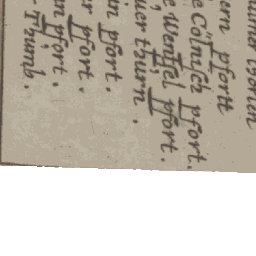 ern pfortt
e Cölnisch pfort.
e Wentfel pfort.
uer thurn.
n pfort.
r pfort.
n pfort.
Thumb.